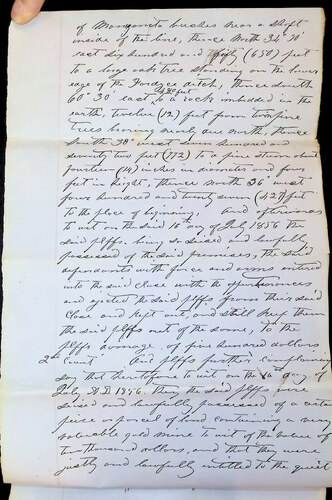 of Manzanita bushes near a shaft
inside of the line, thence North 34° 30'
east six hundred and fifty (650) feet
to a large oak tree standing on the lower
edge of the Fordyce ditch, thence south
60° 30' east feet to a rock imbedded in the
earth, twelve (12) feet from two pine
trees bearing nearly due north, thence
South 38° west seven hundred and
seventy two feet (772) to a pine stump about
fourteen (14) inches in diameter and four
feet in height, thence north 36° west
four hundred and twenty seven (427) feet
to the place of beginning, And afterwards
to wit on the said 10th day of July 1856 the
said plffs. being so seized and lawfully
possessed of the said premises, the said
defendants with force and arms entered
into the said close with the appurtenances
and ejected the said plffs from their said
close and kept out, and still keep them
the said plffs out of the same, to the
plffs damage of five hundred dollars
2nd Count And plffs further complaining
say that heretofore to wit on the 10th day of
July A.D. 1856. they the said plffs were
seized and lawfully possessed of a certain
piece or parcel of land containing a very
valuable gold mine to wit of the value of
two thousand dollars, and that they were
justly and lawfully entitled to the quiet